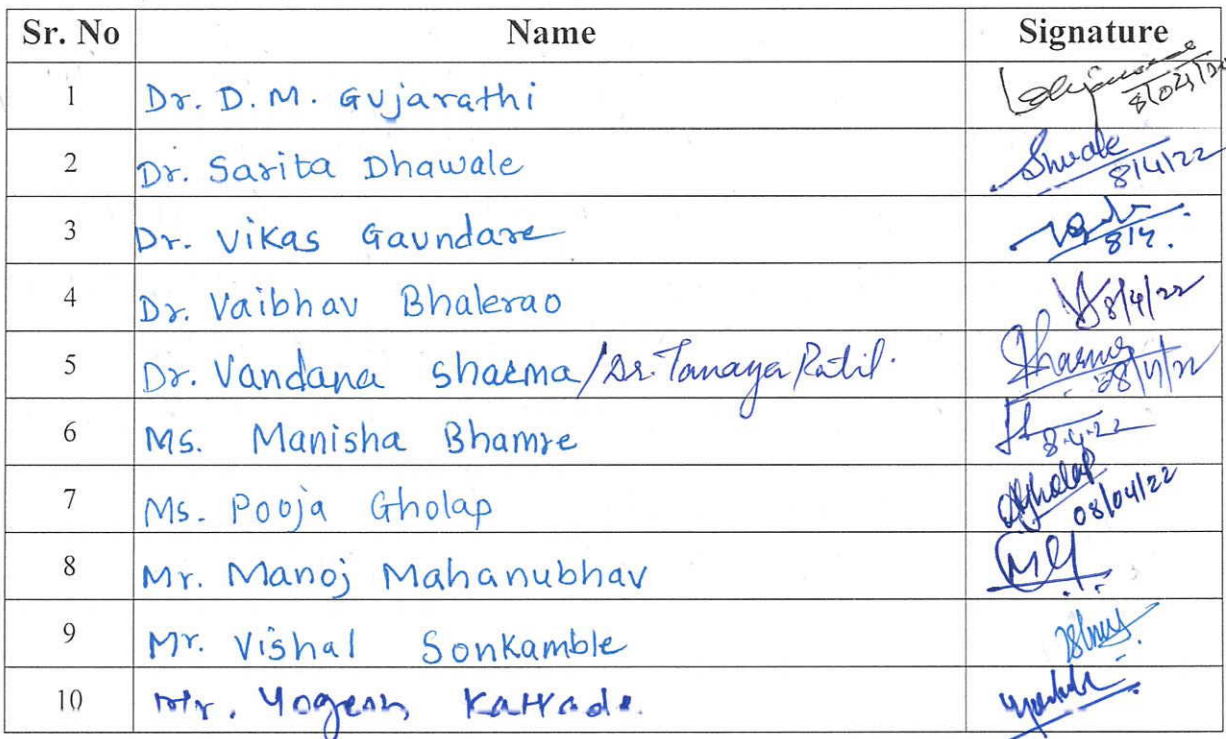 Sr. No Name Signature
1 Dr. D. M. Gujarathi
2 Dr. Sarita Dhawale 8/4/22
3 Dr. Vikas Gaundare 8/4.
4 Dr. Vaibhav Bhalerao 8/4/22
5 Dr. Vandana Sharma/Dr. Tanaya Patil. Sharma
6 Ms. Manisha Bhamre 8.4.22
7 Ms. Pooja Gholap Gholap 08/04/22
8 Mr. Manoj Mahanubhav
9 Mr. Vishal Sonkamble
10 Mr. Yogesh